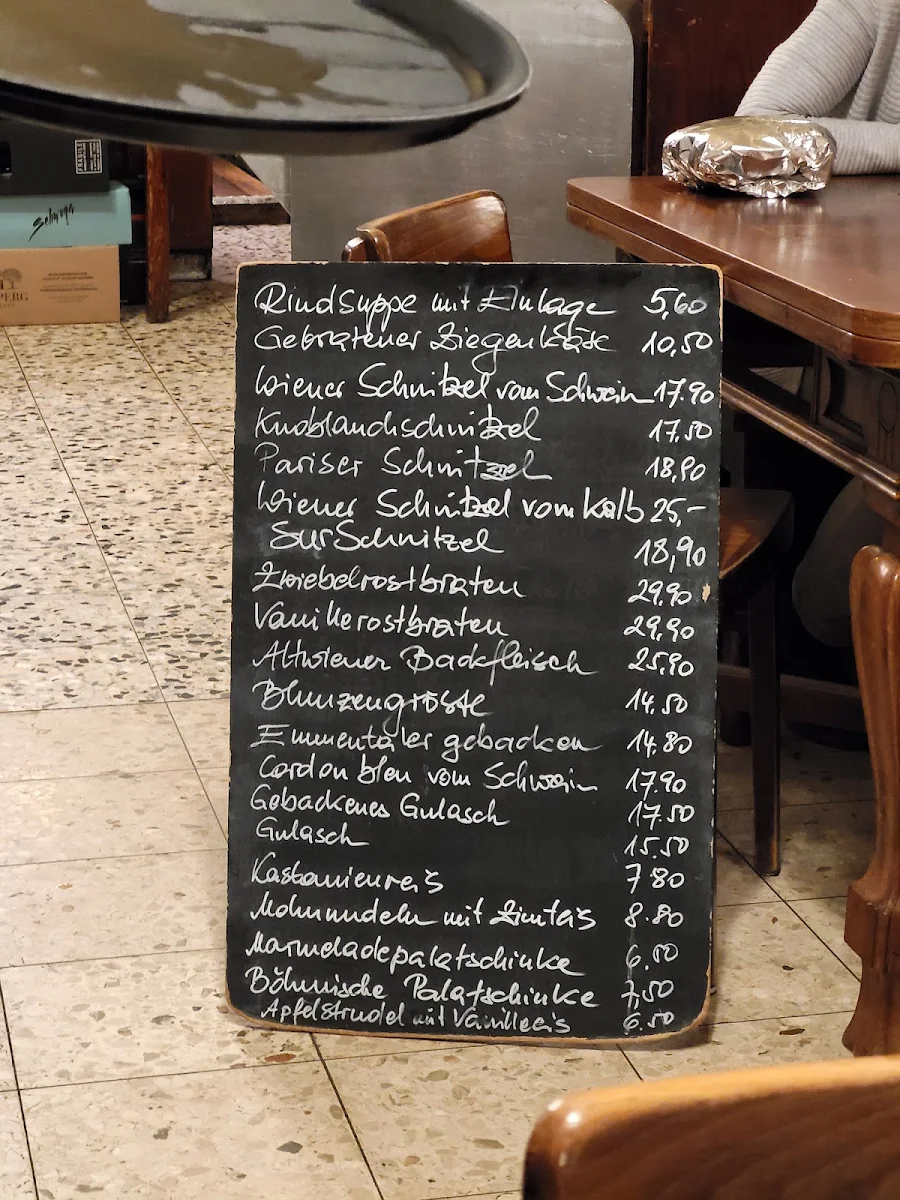 FRAGILE
PERG
Rindsuppe mit Einlage 5,60
Gebratener Ziegenkäse 10,50
Wiener Schnitzel vom Schwein 17.90
Knoblauchschnitzel 17.50
Pariser Schnitzel 18,90
Wiener Schnitzel vom Kalb 25,-
SurSchnitzel 18,90
Zwiebelrostbraten 29.90
Vanillerostbraten 29,90
Altwiener Backfleisch 25.90
Blunzengröstl 14.50
Emmentaler gebacken 14.80
Cordon bleu vom Schwein 17.90
Gebackenes Gulasch 17.50
Gulasch 15.50
Kastanienreis 7 80
Mohnnudeln mit Zimteis 8.80
Marmeladepalatschinke 6.50
Böhmische Palatschinke 7,50
Apfelstrudel mit Vanilleeis 6.50